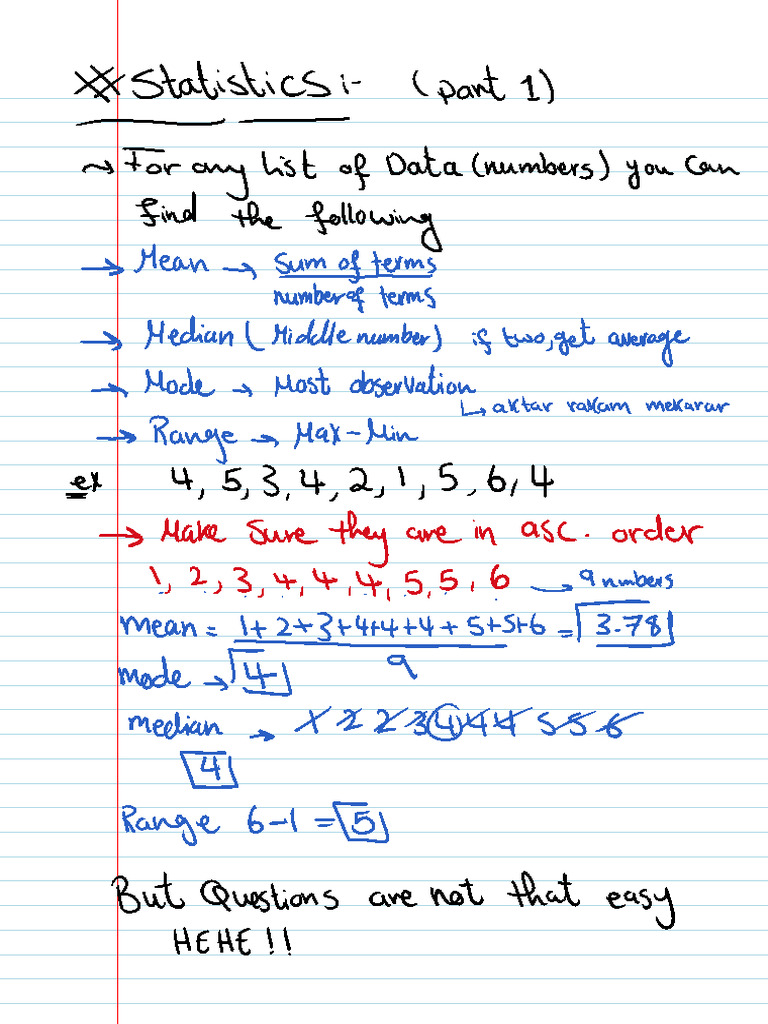 Statistics :- (part 1)
~> For any list of Data (numbers) you can
find the following
→ Mean → Sum of terms
number of terms
→ Median (Middle number) if two, get average
→ Mode → Most observation
↳ aktar rakam mekarar
→ Range → Max - Min
ex 4, 5, 3, 4, 2, 1, 5, 6, 4
→ Make sure they are in asc. order
1, 2, 3, 4, 4, 4, 5, 5, 6 → 9 numbers
mean = 1+2+3+4+4+4+5+5+6 = 3.78
9
mode → 4
median → 1 2 2 3 4 4 4 5 5 6
4
Range 6-1 = 5
But Questions are not that easy
HEHE!!